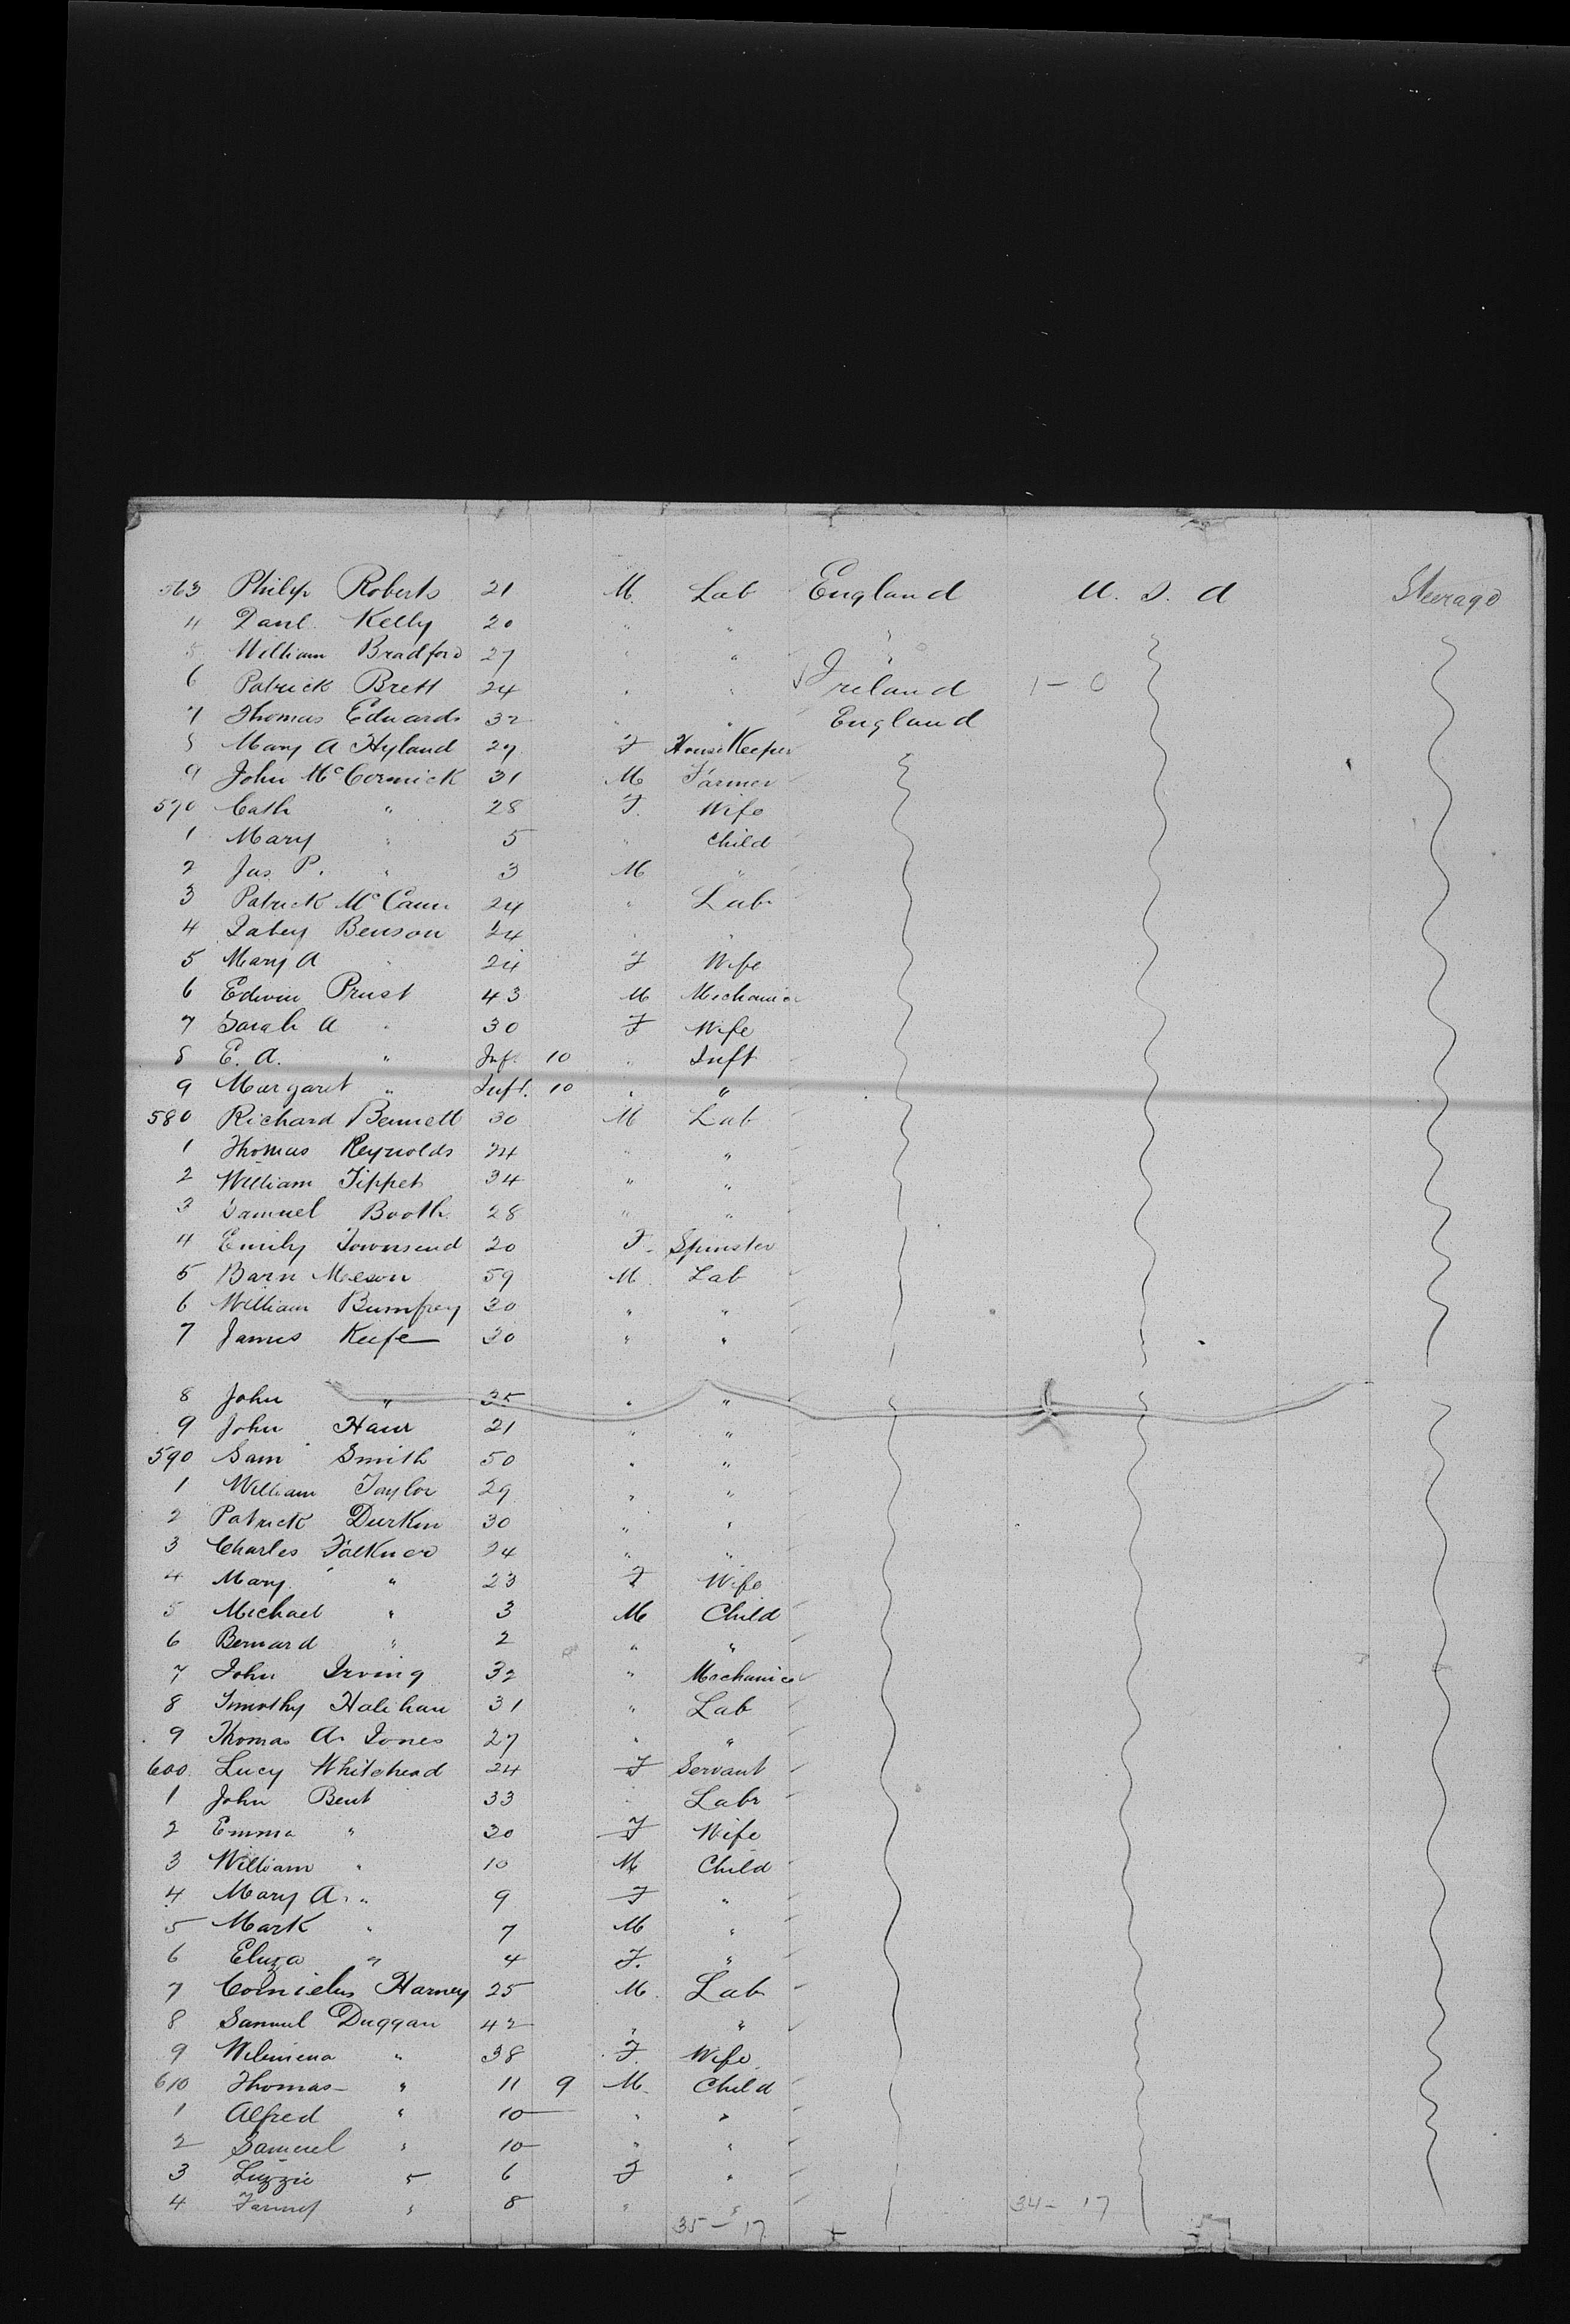 563 Philip Roberts 21 M. Lab England U. S. A Steerage
4 Danl. Kelly 20 " " "
5 William Bradford 27 " " "
6 Patrick Brett 24 " " Ireland 1 - 0
7 Thomas Edwards 32 " " England
8 Mary A Hyland 29 F HouseKeeper
9 John McCormick 31 M Farmer
570 Cath " 28 F. Wife
1 Mary " 5 " Child
2 Jas. P. " 3 M "
3 Patrick McCann 24 " Lab
4 Benson 24 " "
5 Mary A " 24 F Wife
6 Edwin Prust 43 M Mechanic
7 Sarah A " 30 F Wife
8 E. A. " Inf. 10 " Inft
9 Margaret " Inft. 10 " "
580 Richard Bennett 30 M Lab
1 Thomas Reynolds 24 " "
2 William Tippet 34 " "
3 Samuel Booth 28 " "
4 Emily Townsend 20 F. Spinster
5 Barn 59 M. Lab
6 William Bumfrey 30 " "
7 James Keefe 30 " "
8 John " 35 " "
9 John 21 " "
590 Sam Smith 50 " "
1 William Taylor 29 " "
2 Patrick Durkin 30 " "
3 Charles Falkner 24 " "
4 Mary " 23 F Wife
5 Michael " 3 M Child
6 Bernard " 2 " "
7 John Irving 32 " Mechanic
8 Timothy Halihan 31 " Lab
9 Thomas A. Jones 27 " "
600 Lucy Whitehead 24 F Servant
1 John Bent 33 " Labr
2 Emma " 30 F Wife
3 William " 10 M Child
4 Mary A. " 9 F "
5 Mark " 7 M "
6 Eliza " 4 F. "
7 Cornielus Harney 25 M. Lab
8 Samuel Duggan 42 " "
9 Wilmiena " 38 F. Wife
610 Thomas " 11 9 M. Child
1 Alfred " 10 " "
2 Samuel " 10 " "
3 Lizzie " 6 F "
4 Fanny " 8 " "
34 - 17
35 - 17